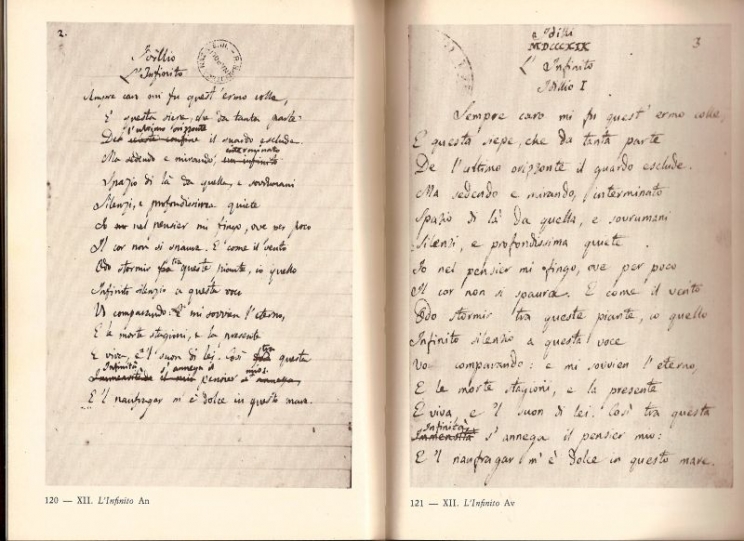 2.
Idillio
L'Infinito
Sempre caro mi fu quest'ermo colle,
E questa siepe, che da tanta parte
l'ultimo orizzonte
De celeste confine il guardo esclude.
interminato
Ma sedendo e mirando, un infinito
Spazio di là da quella, e sovrumani
Silenzi, e profondissima quiete
Io nel pensier mi fingo, ove per poco
Il cor non si spaura. E come il vento
tra
Odo stormir fra queste piante, io quello
Infinito silenzio a questa voce
Vo comparando: E mi sovvien l'eterno,
E le morte stagioni, e la presente
tra
E viva, e 'l suon di lei. Così fra questa
Infinità s'annega il mio:
Immensitade il mio pensier s'annega,
E 'l naufragar m'è dolce in questo mare.
120 — XII. L'Infinito An
Idilli
MDCCCXIX
3
L'Infinito
Idillio I
Sempre caro mi fu quest'ermo colle,
E questa siepe, che da tanta parte
De l'ultimo orizzonte il guardo esclude.
Ma sedendo e mirando, interminato
Spazio di là da quella, e sovrumani
Silenzi, e profondissima quiete
Io nel pensier mi fingo, ove per poco
Il cor non si spaura. E come il vento
Odo stormir tra queste piante, io quello
Infinito silenzio a questa voce
Vo comparando: e mi sovvien l'eterno,
E le morte stagioni, e la presente
E viva, e 'l suon di lei. Così tra questa
Infinità
Immensità s'annega il pensier mio:
E 'l naufragar m'è dolce in questo mare.
121 — XII. L'Infinito Av